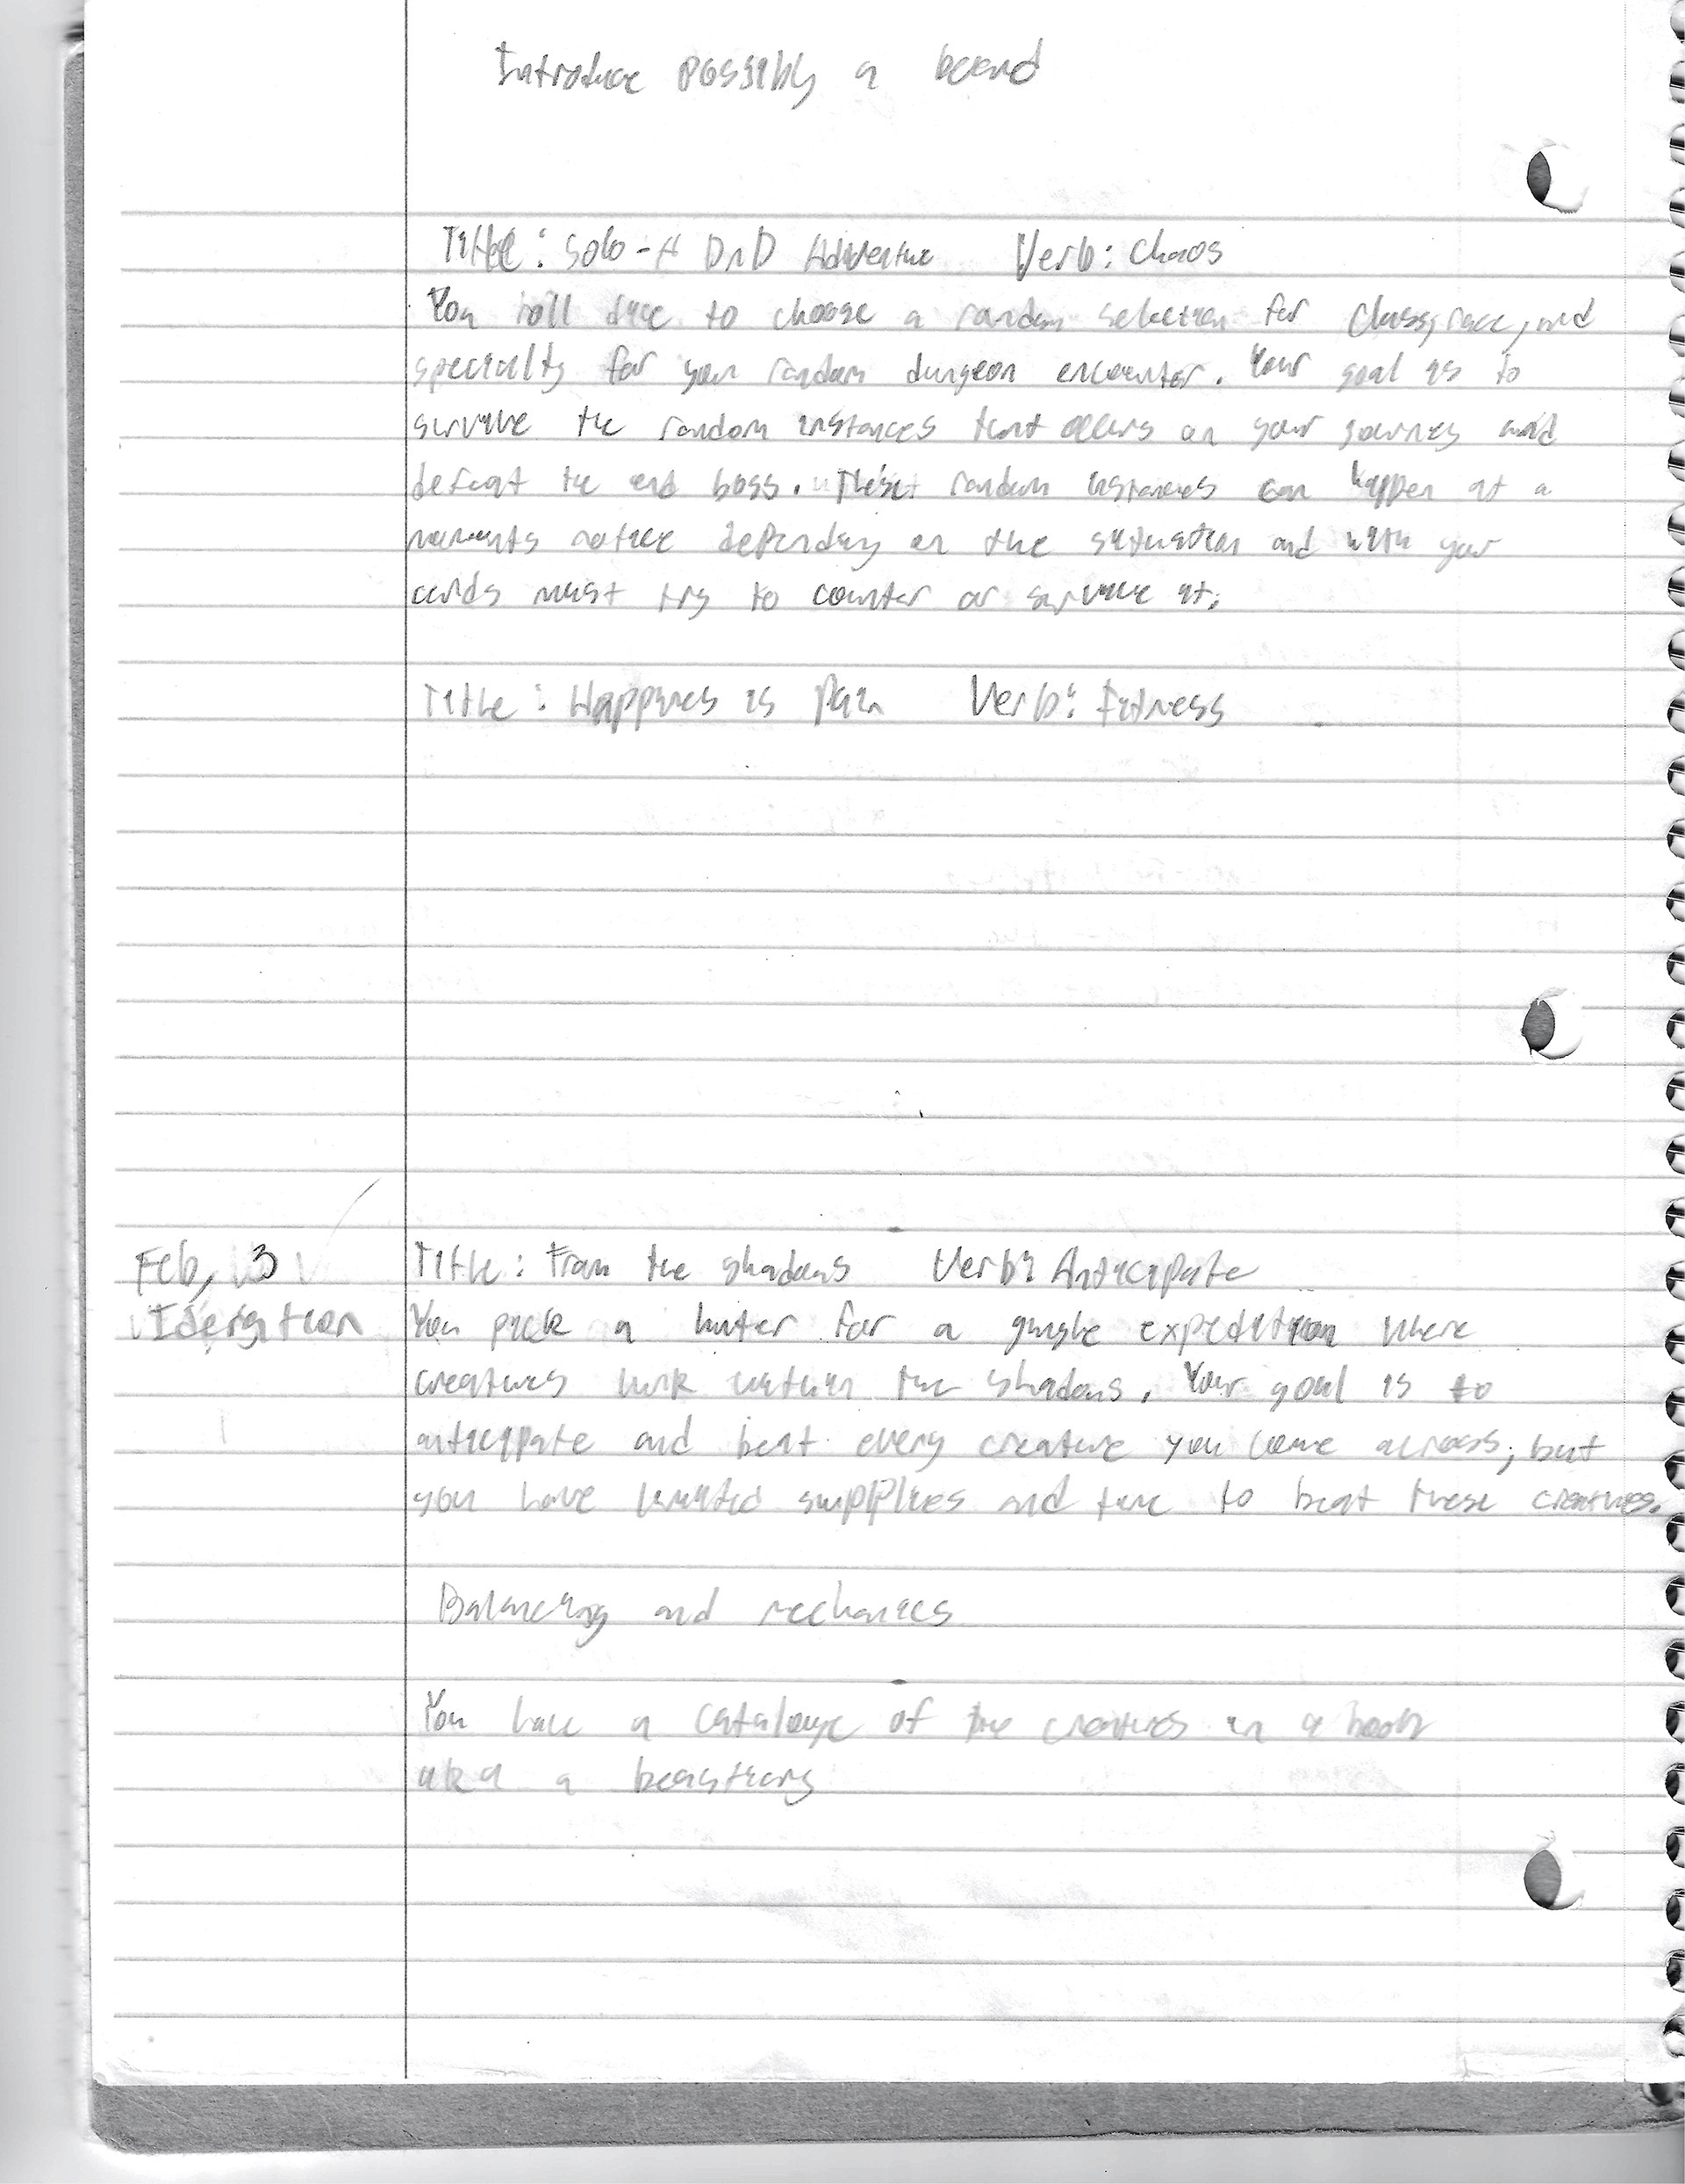 Introduce possibly a board
Title: Solo-A DnD Adventure Verb: Chaos
You roll dice to choose a random selection for Class, race, and
specialty for your random dungeon encounter. Your goal is to
survive the random instances that occurs on your journey and
defeat the end boss. These random instances can happen at a
moments notice depending on the situation and with your
cards must try to counter or survive it.
Title: Happines is Pain Verb: Fitness
Feb, 3 Title: From the shadows Verb: Anticipate
Ideration You pick a hunter for a jungle expedition where
creatures lurk within the shadows. Your goal is to
anticipate and beat every creature you come across, but
you have limited supplies and time to beat these creatures.
Balancing and mechanics
You have a catalouge of the creatures in a book
aka a beastiary